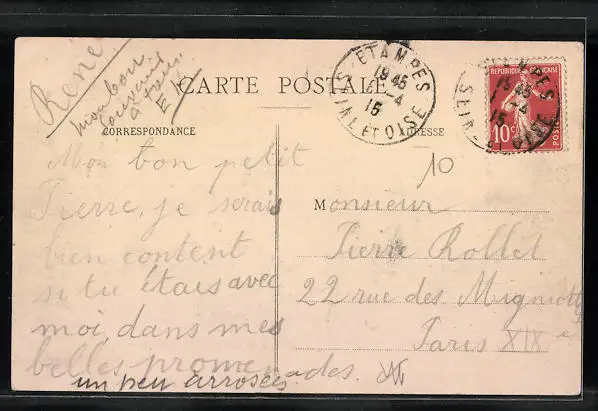 René
mon bon
souvenir
à tous.
CARTE POSTALE
CORRESPONDANCE
ADRESSE
ETAMPES
19 45
1-4
15
SEINE ET OISE
REPUBLIQUE FRANÇAISE
10c
POSTES
10
Mon bon petit
Pierre, je serais
bien content
si tu étais avec
moi dans mes
belles promenades.
un peu arrosées
Monsieur
Pierre Rollet
22 rue des
Paris XIXe